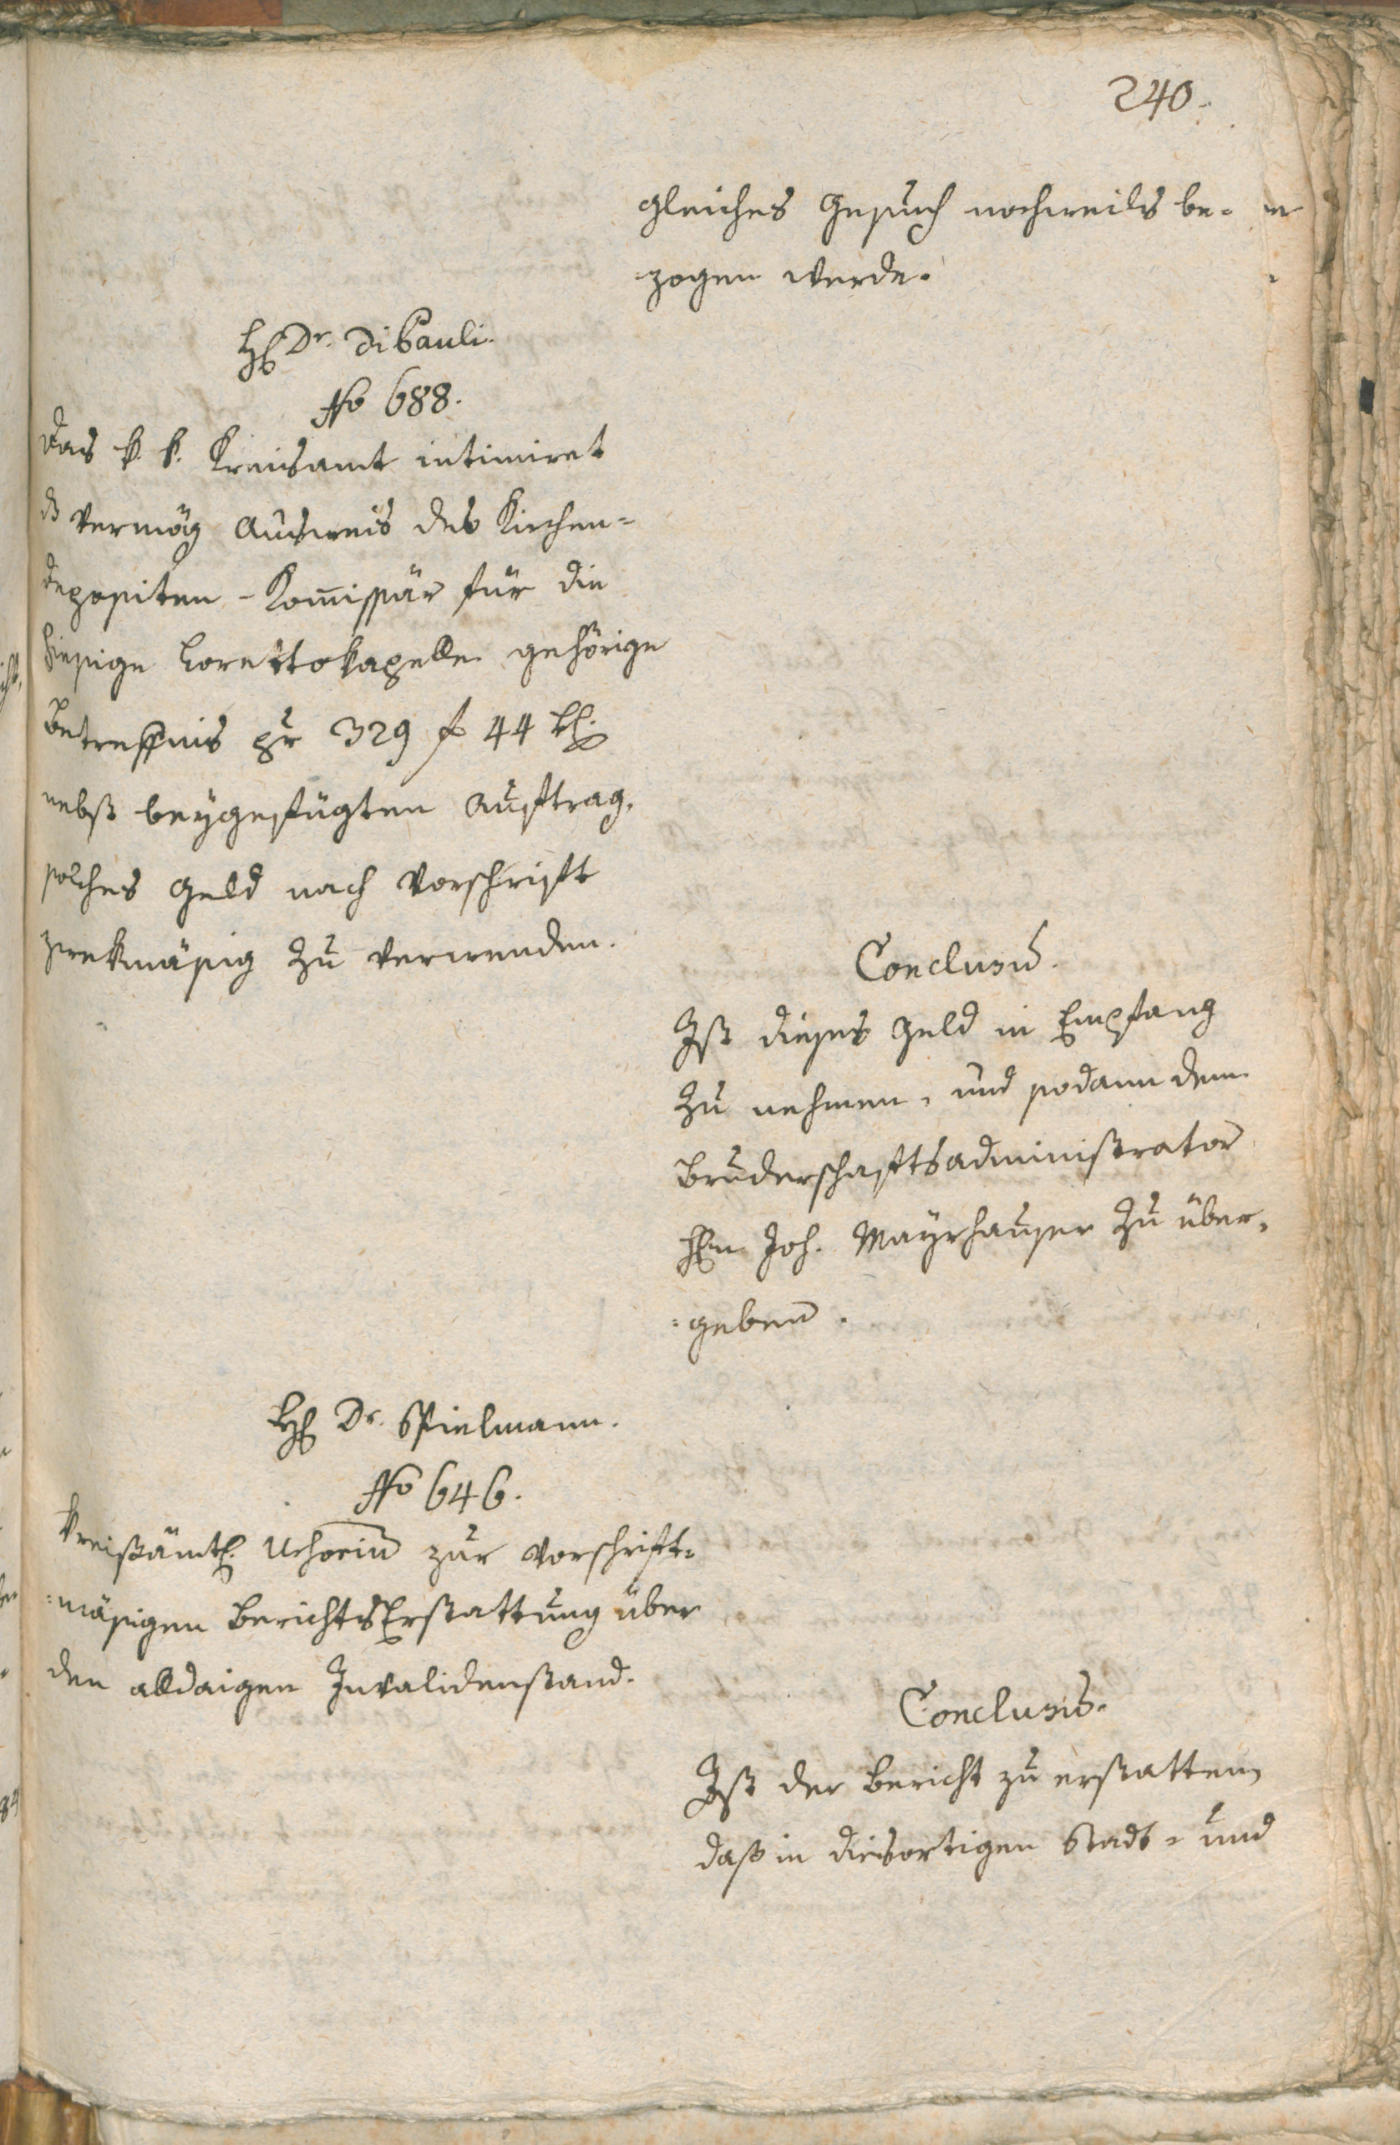 240.
gleiches Gesuch nochweils be-
zogen werde.
H. Dr. Di Pauli.
No 688.
Das k. k. Kreisamt intimiret
ds vermög Ausweis des Kirchen=
depositen-Kom̅issär für die
hiesige Lorettokapelle gehörige
Betreffnis pr 329 f 44 k.
nebst beygefügten Auftrag,
solches Geld nach Vorschrift
zwekmäsig zu verwenden.
Conclusū.
Ist dieses Geld in Empfang
zu nehmen, und sodann dem
Bruderschaftsadministrator
Hrn Joh. Mayrhauser zu über-
=geben.
H. Dr. Spielmann.
No 646.
Kreisämtl. zur Vorschrift=
=mäsigen BerichtsErstattung über
den alldaigen Invalidenstand.
Conclusis.
Ist der Bericht zu erstatten,
daß in diesortigen Stadt- und